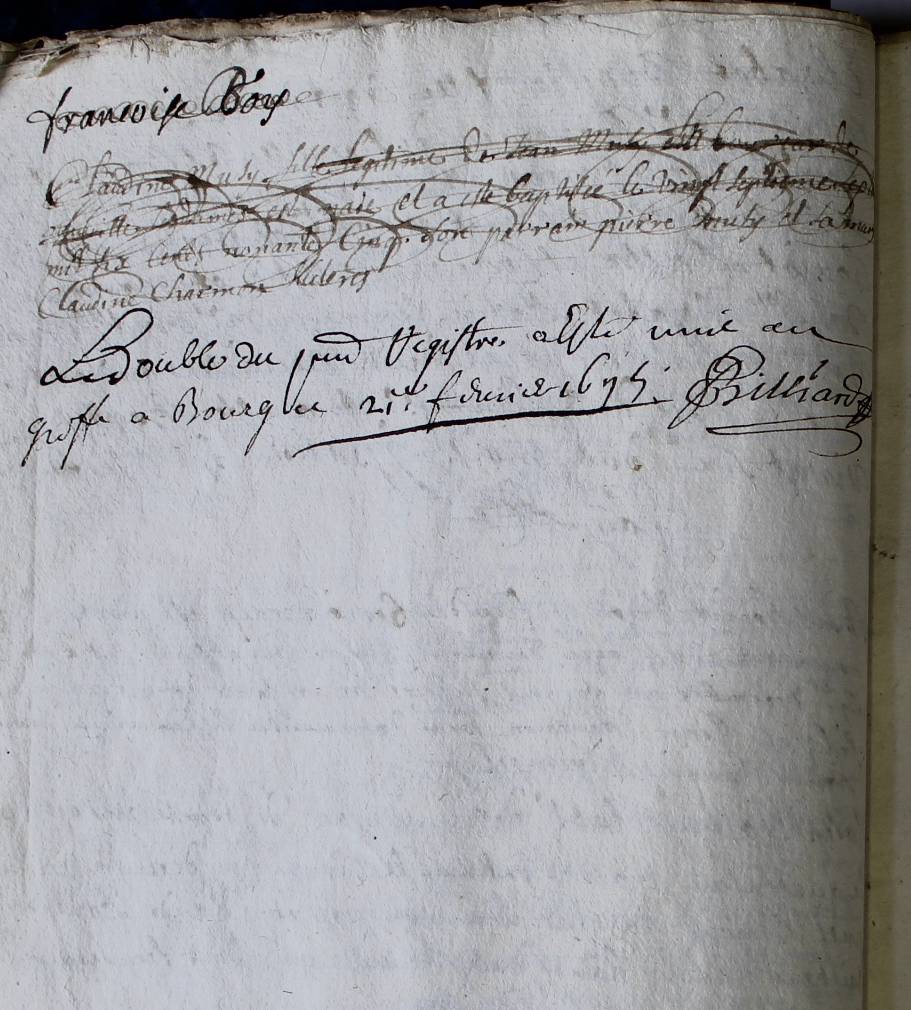 francoise Boys
Claudine Muty fille legitime de Jean Muty et de
est naie et a este baptisée le vingt septieme
mil six cents nonante cinq. son parrain pierre muty et sa mar
Claudine Charmon
Le Double du pnt Registre a Esté mis au
greffe a Bourg ce 21e fevrier 1695. Billiard